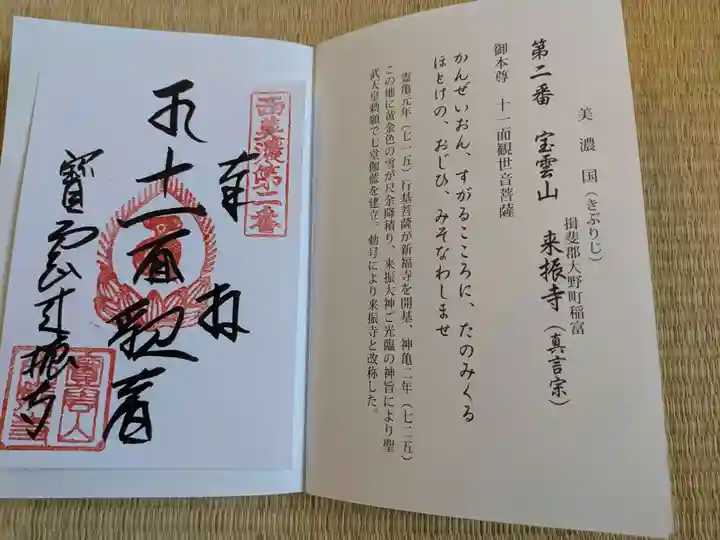 美濃国
揖斐郡大野町稲富
(きぶりじ)
第二番 宝雲山 来振寺(真言宗)
御本尊 十一面観世音菩薩
かんぜいおん、すがるこころに、たのみくる
ほとけの、おじひ、みそなわしませ
霊亀元年(七一五)行基菩薩が新福寺を開基、神亀二年(七二五)
この地に黄金色の雪が尺余降積り、来振大神ご光臨の神旨により聖
武天皇勅願で七堂伽藍を建立。勅号により来振寺と改称した。
西美濃第二番
奉拝
十一面観音
寳雲山来振寺